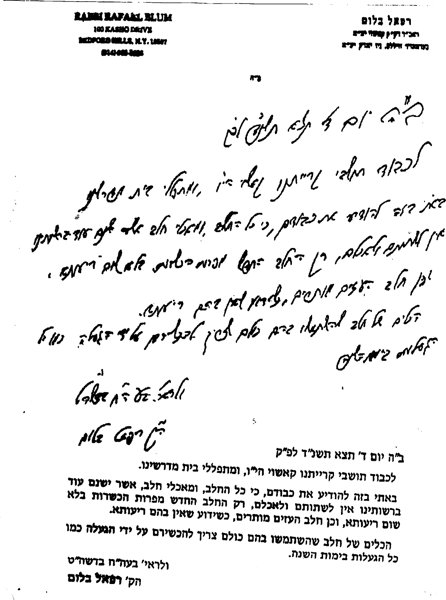 RABBI RAFAEL BLUM
100 KASHO DRIVE
BEDFORD HILLS, N.Y. 10507
רפאל בלום
ב״ה
ב״ה יום ד׳ תצא תשנ״ד לפ״ק
לכבוד תושבי קרייתנו קאשוי הי״ו, ומתפללי בית מדרשינו
באתי בזה להודיע את כבודם, כי כל החלב, ומאכלי חלב אשר ישנם עוד ברשותינו
אין לשתותם ולאכלם, רק החלב החדש מפרות הכשרות בלא שום ריעותא,
וכן חלב העזים מותרים, כשידוע שאין בהם ריעותא.
הכלים של חלב שהשתמשו בהם כולם צריך להכשירם על ידי הגעלה כמו כל
הגעלות בימות השנה
ולראי׳ בעה״ח בדשה״ט
הק׳ רפאל בלום
ב״ה יום ד׳ תצא תשנ״ד לפ״ק
לכבוד תושבי קרייתנו קאשוי הי״ו, ומתפללי בית מדרשינו.
באתי בזה להודיע את כבודם, כי כל החלב, ומאכלי חלב, אשר ישנם עוד
ברשותינו אין לשתותם ולאכלם, רק החלב החדש מפרות הכשרות בלא
שום ריעותא, וכן חלב העזים מותרים, כשידוע שאין בהם ריעותא.
הכלים של חלב שהשתמשו בהם כולם צריך להכשירם על ידי הגעלה כמו
כל הגעלות בימות השנה.
ולראי׳ בעה״ח בדשה״ט
הק׳ רפאל בלום